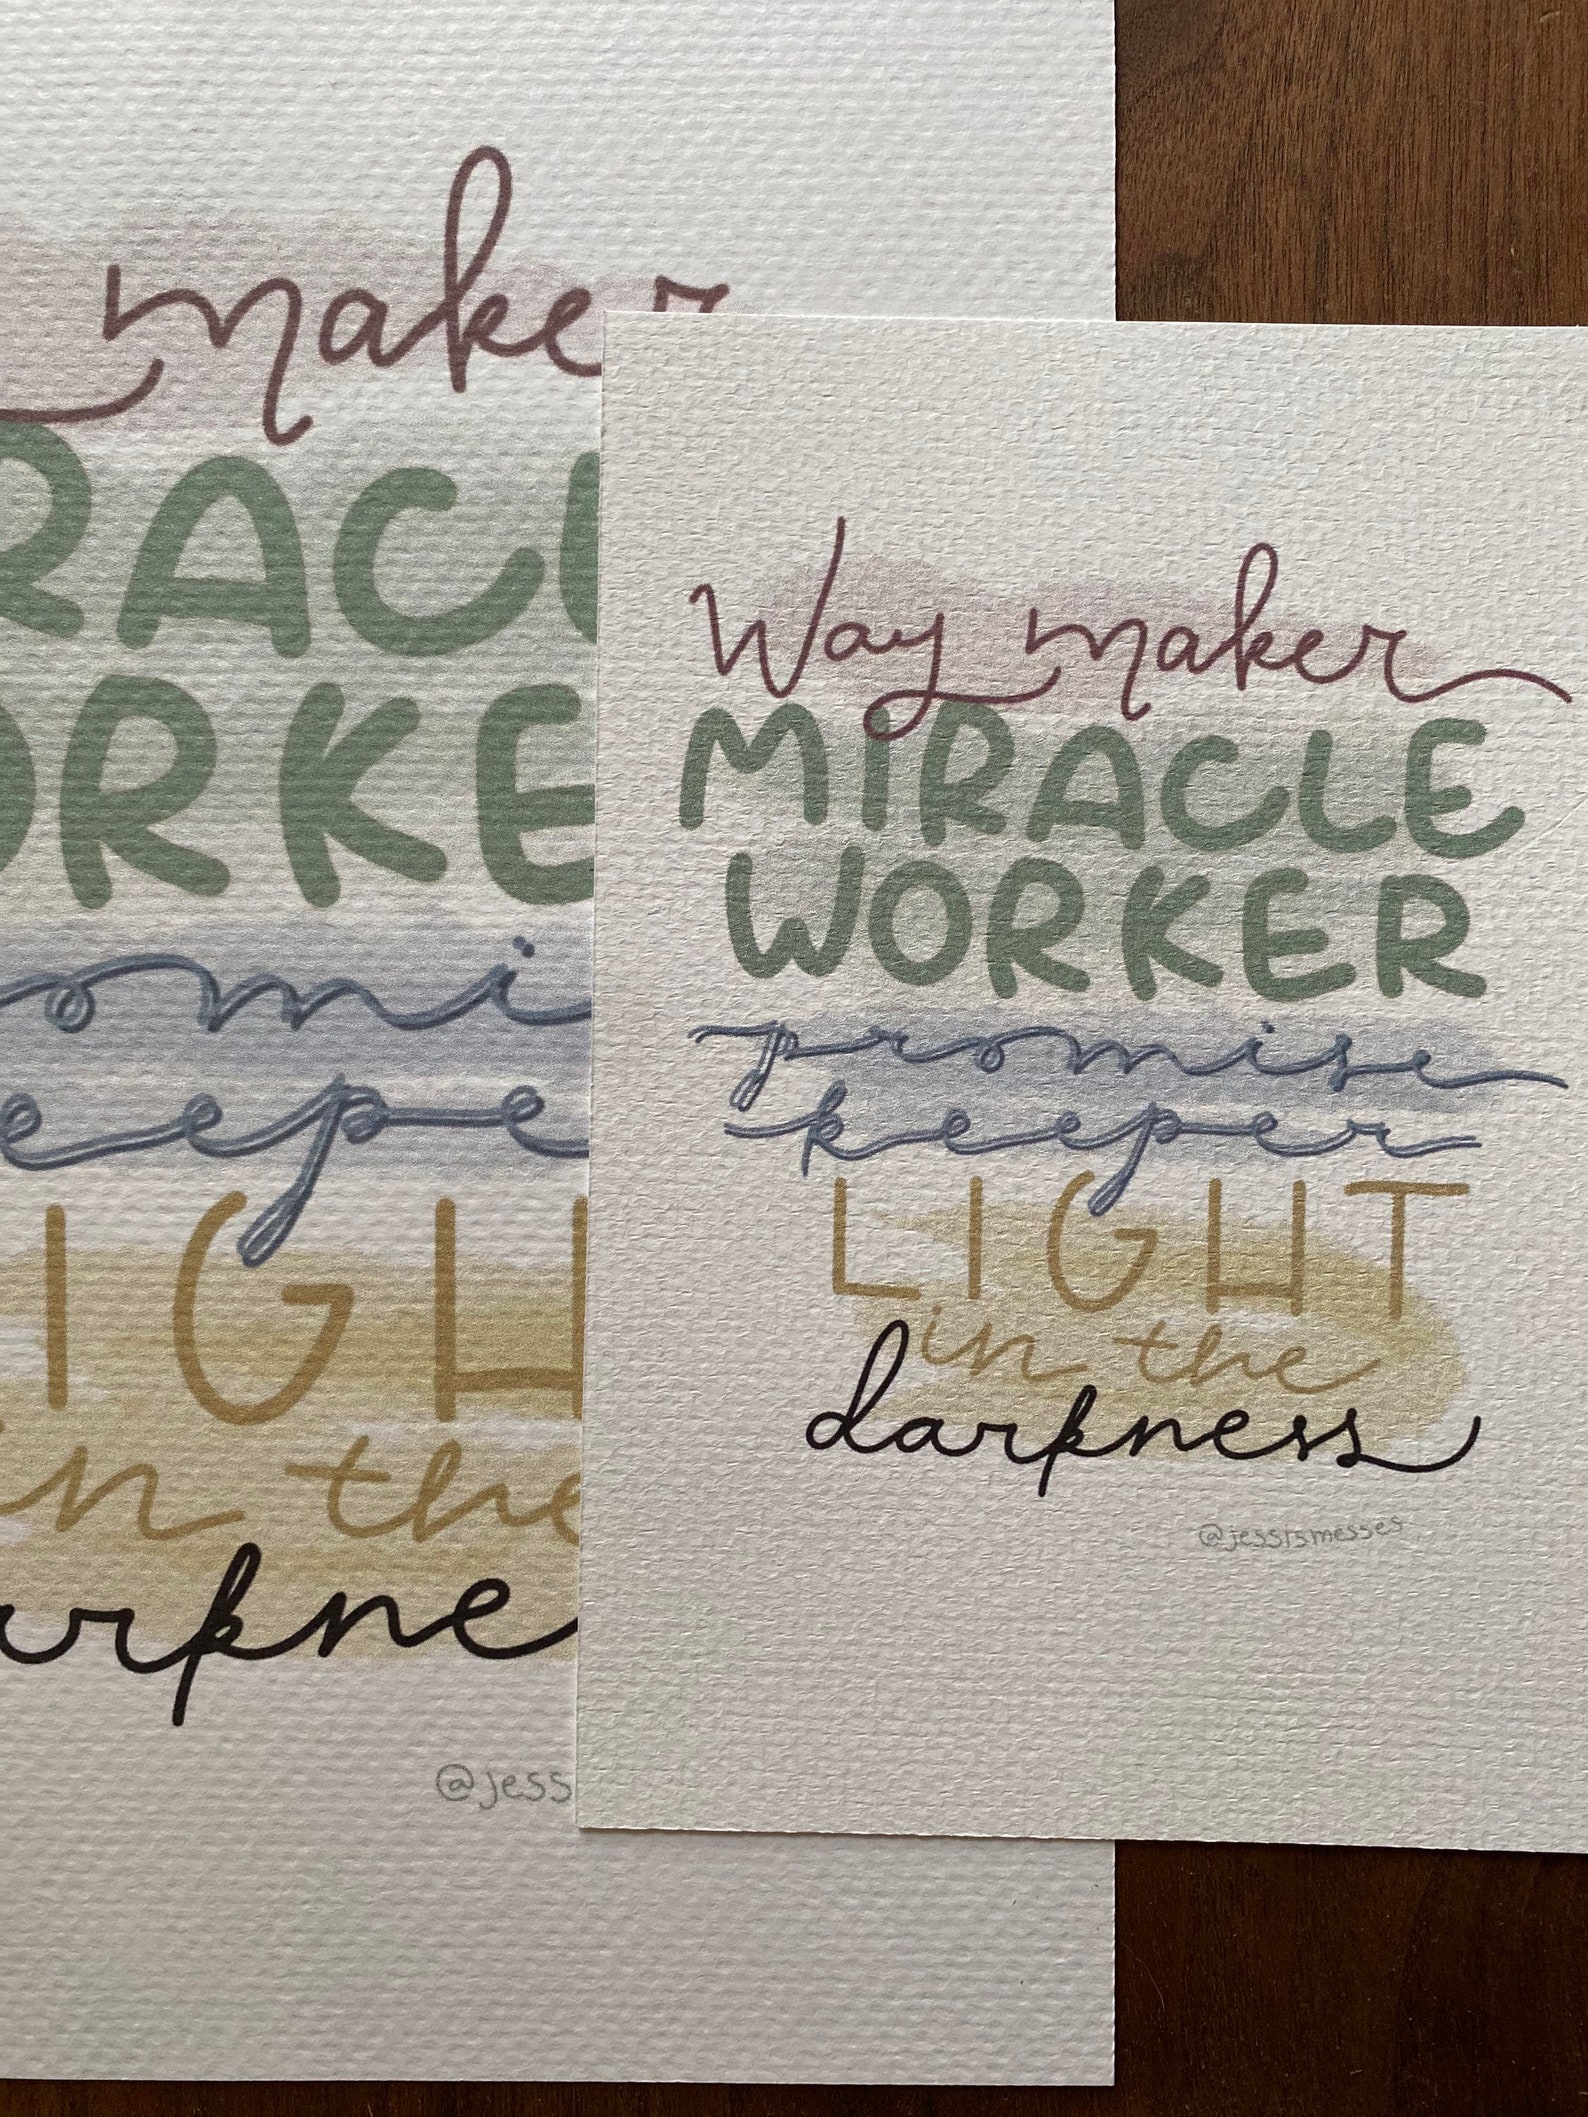 maker
RACL
ORKE
omi
eepe
IGH
in the
arkne
@jess
Way maker
MIRACLE
WORKER
promise
keeper
LIGHT
in the
darkness
@jessismesses